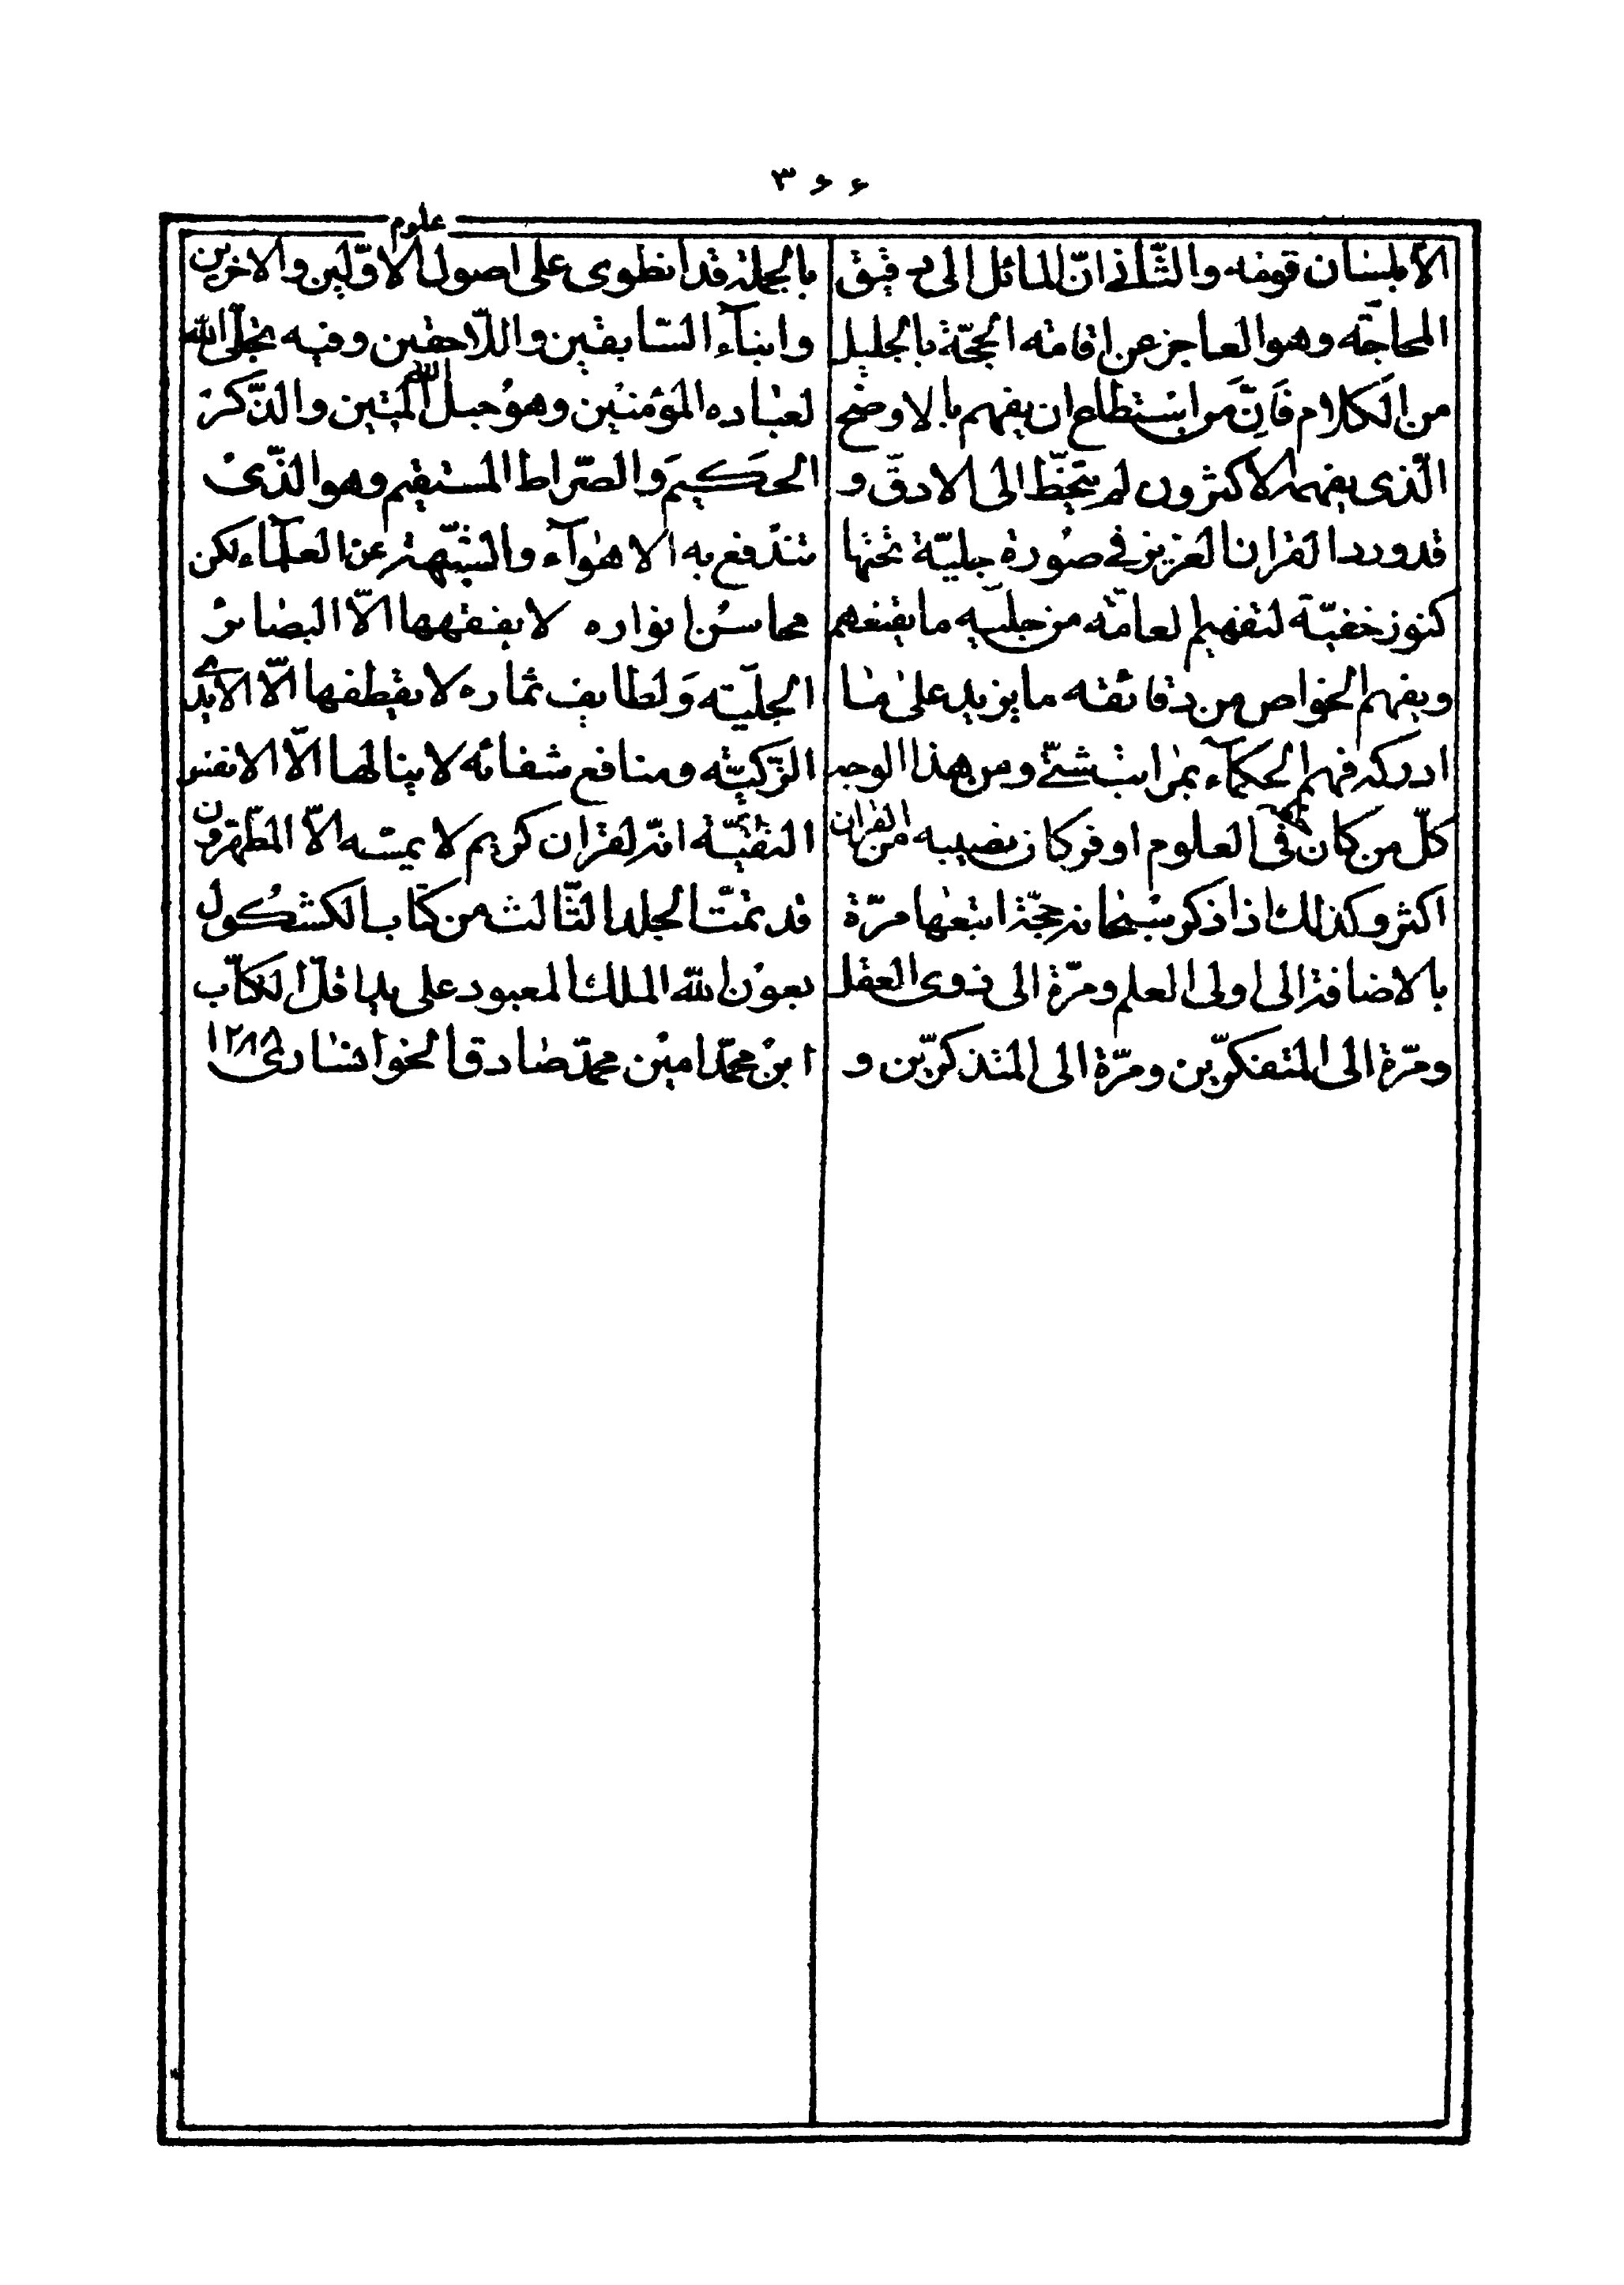 ۳۶۶
الّا بلسان قومه والثّانی انّ المائل الی دقیق
المحاجّة وهو العاجز عن اقامة الحجّة بالجلیل
من الکلام فَانّ مَن استطاع ان یفهم بالاوضح
الّذی یفهمه الاکثرون لم یتخطّ الی الادقّ و
قد ورد القران العزیز فی صورة جلیّة تحتها
کنوز خفیّة لتفهیم العامّة من جلیّه ما یقنعهم
و یفهم الخواص من دقائقه ما یزید علی ما
ادرکه فهم الحکمآء بمراتب شتّی و من هذا الوجه
کلّ من کان حظّه فی العلوم اوفر کان نصیبه من القران
اکثر و کذلك اذا ذکر سبحانه حجّة اتبعها مرّة
بالاضافة الی اولی العلم و مرّة الی ذوی العقل
و مرّة الی المتفکّرین و مرّة الی المتذکّرین و
علوم
بالجملة قد انطوی علی اصول الاوّلین والاخرین
وانبآء السّابقین واللّاحقین وفیه تجلّی الله
لعباده المؤمنین وهو حبل الله المتین والذّکر
الحکیم وَالصّراط المستقیم وهو الذّی
تندفع به الاهوآء والشّبهة عن العلمآء لکن
محاسن انواره لا یفقهها الّا البصائر
الجلیّه وَلطایف ثماره لا یقطفها الّا الایدی
الزّکیّه و منافع شفائه لا ینالها الّا الانفس
النقیّة انّه لقران کریم لا یمسّه الّا المطهّرون
قد تمّت الجلد الثّالث من کتاب الکشکول
بعون الله الملك المعبود علی ید اقلّ الکتّاب
ابن محمّد امین محمّد صادق الخوانساری ۱۲۸۸